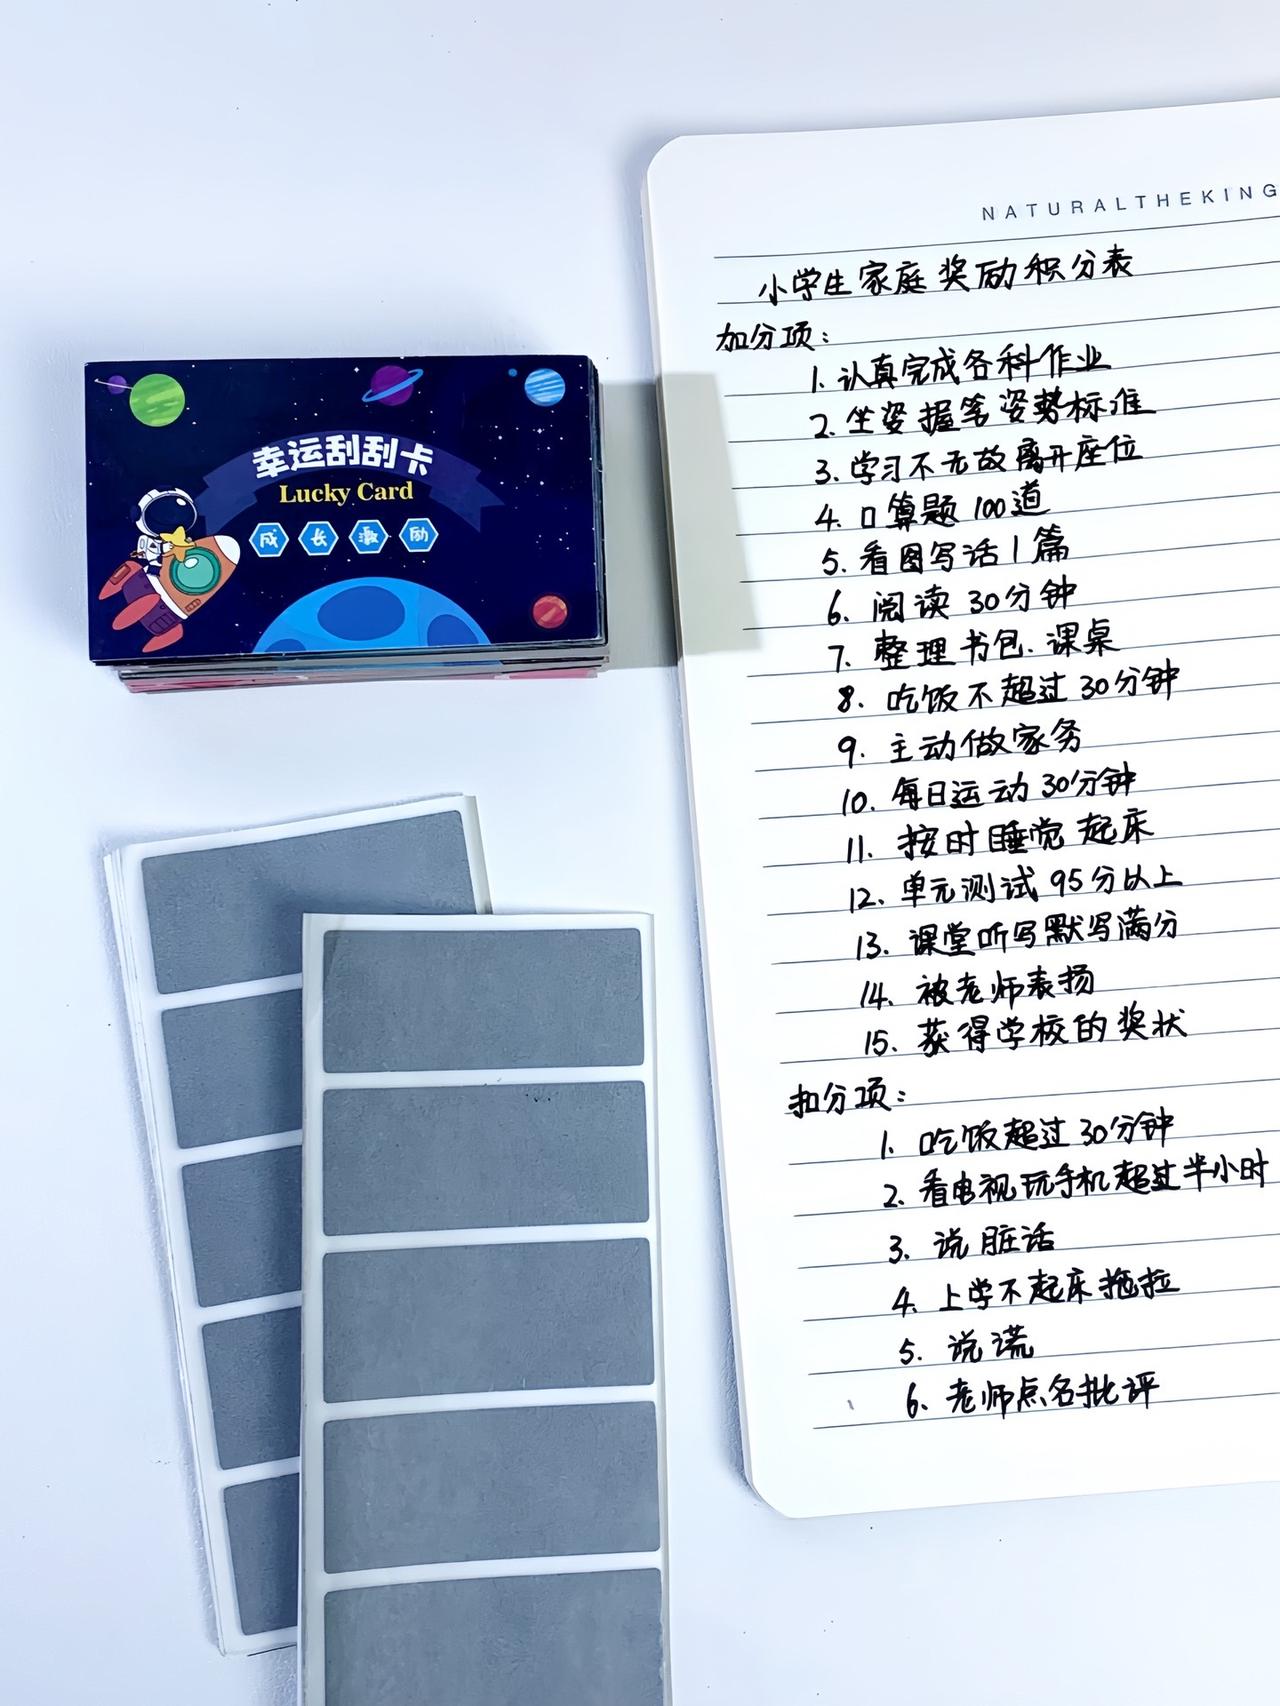 幸运刮刮卡
Lucky Card
成长激励
NATURALTHEKING
小学生家庭奖励积分表
加分项：
1. 认真完成各科作业
2. 坐姿握笔姿势标准
3. 学习不无故离开座位
4. 口算题100道
5. 看图写话1篇
6. 阅读30分钟
7. 整理书包.课桌
8. 吃饭不超过30分钟
9. 主动做家务
10. 每日运动30分钟
11. 按时睡觉起床
12. 单元测试95分以上
13. 课堂听写默写满分
14. 被老师表扬
15. 获得学校的奖状
扣分项：
1. 吃饭超过30分钟
2. 看电视玩手机超过半小时
3. 说脏话
4. 上学不起床拖拉
5. 说谎
6. 老师点名批评